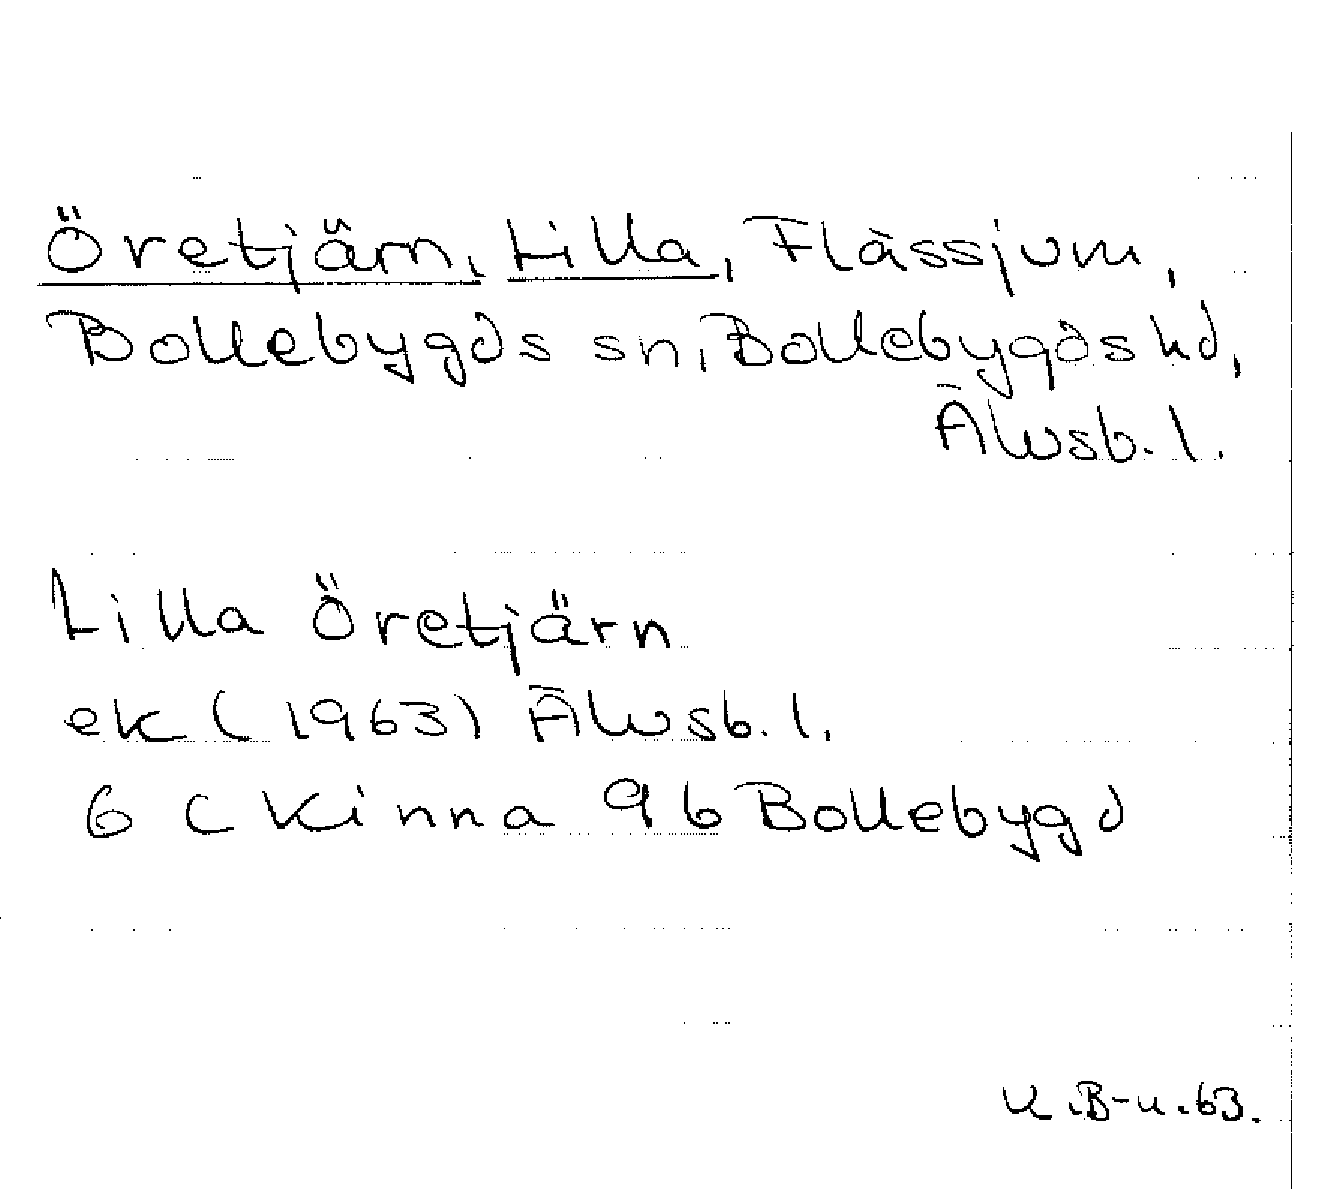 Öretjärn, Lilla, Flässjum,
Bollebygds sn, Bollebygds hd,
Älvsb. l.
Lilla Öretjärn
ek (1963) Älvsb. l.
6 C Kinna 9 b Bollebygd
K.B-n.63.